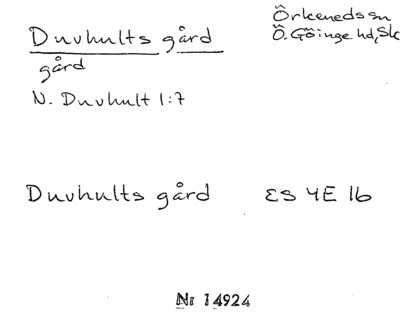 Duvhults gård
gård
N. Duvhult 1:7
Örkeneds sn
Ö. Göinge hd, Sk
Duvhults gård ES 4E 1b
Nr 14924